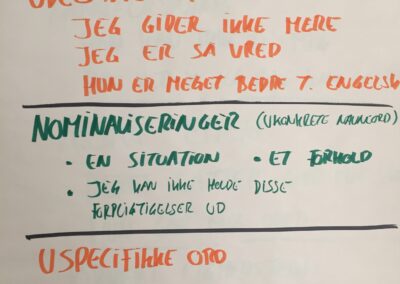 JEG GIDER IKKE MERE
JEG ER SÅ VRED
HUN ER MEGET BEDRE T. ENGELSK
NOMINALISERINGER (UKONKRETE NAVNEORD)
• EN SITUATION • ET FORHOLD
• JEG KAN IKKE HOLDE DISSE
FORPLIGTIGELSER UD
USPECIFIKKE ORD